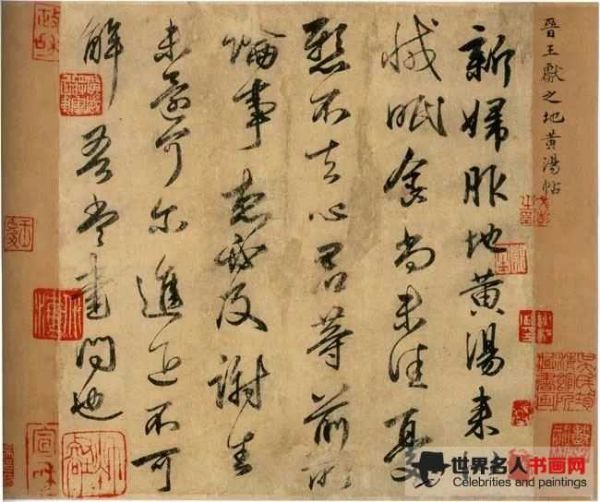 晉王獻之地黄湯帖
新婦服地黄湯来似
減眠食尚未佳憂
懸不去心君等前所
論事想必及謝生
未還可爾進退不可
解吾當書問也
政和
宣和
世界名人书画网
Celebrities and paintings